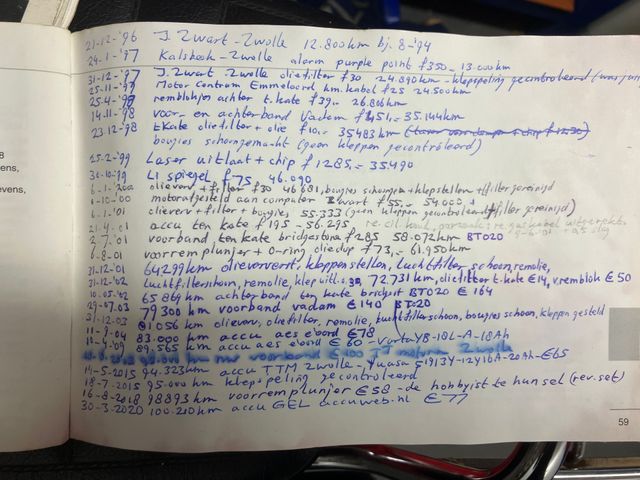 21-12-'96 J. Zwart-Zwolle 12.800km bj. 8-'94
24-1-'97 Kalsbeek-Zwolle alarm purple point f350,- 13.000km
31-12-'97 J. Zwart Zwolle oliefilter f30 24.890km - klepspeling gecontroleerd
25-11-'97 Motor Centrum Emmeloord km. kabel f25 24.500km
25-4-'98 remblokjes achter t. kate f39,- 26.806km
14-11-'98 voor en achterband Vadam f451,- 35.144km
23-12-'98 t Kate oliefilter + olie f10,- 35483 km
bougies schoongemaakt (geen kleppen gecontroleerd)
25-2-'99 Laser uitlaat + chip f1285,- 35.490
30-10-'99 Li spiegel f75,- 46.090
6-1-'200 olieverv + filter f30 46.681, bougies schoongem + klepstellen + filter gereinigd
1-10-'00 motorafgesteld aan computer Zwart f55,- 54.000
6-1-'01 olieverv + filter + bougies 55.333 (geen kleppen gecontroleerd + filter gereinigd)
21-4-01 accu ten kate f195 - 56.295
2-7-'01 voorband ten kate bridgestone f285 58.072km BT020
6-8-01 voorremplunjer + O-ring oliedup f73,- 61.950km
31-12-01 64299km olieververst, kleppenstellen, luchtfilter schoon, remolie,
21-12-'02 luchtfilterschoon, remolie, 72.731 km, oliefilter t. kate €14, v. remblok €50
10-05-'02 65869 km achterband ten kate bridgst BT020 €164
29-07.03 79300 km voorband vadam €140 BT020
31-12.03 81056 km olieverv, oliefilter, remolie, luchtfilterschoon, bougies schoon, kleppen gesteld
11-9-'04 83.000 km accu aes e'oord €78
10-4-'09 89.565 km accu aes e'oord €60 - varta YB-18L-A-18Ah
14-5-2015 94.323km accu TTM Zwolle - Yuasa 51913 Y-12Y16A-20Ah-€65
18-7-2015 95.000 km klepspeling gecontroleerd
16-8-2018 98893 km voorremplunjer €58 - de hobbyist te hunsel (rev. set)
30-3-2020 100.210km accu GEL accuweb.nl €77
59